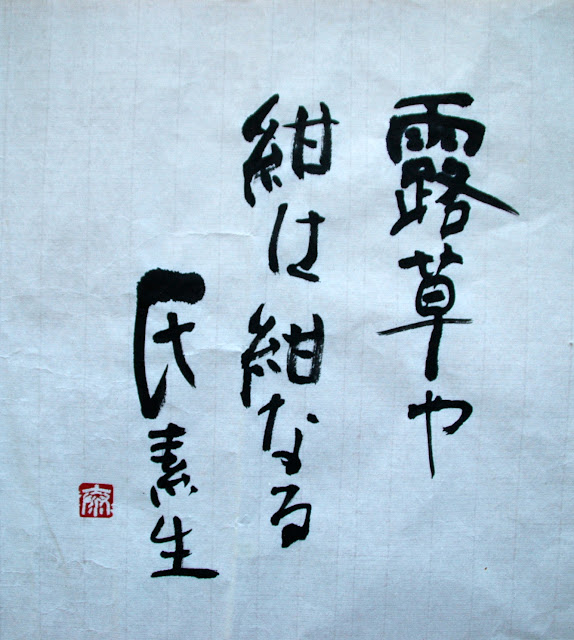 露草や
紺は紺なる
氏素生